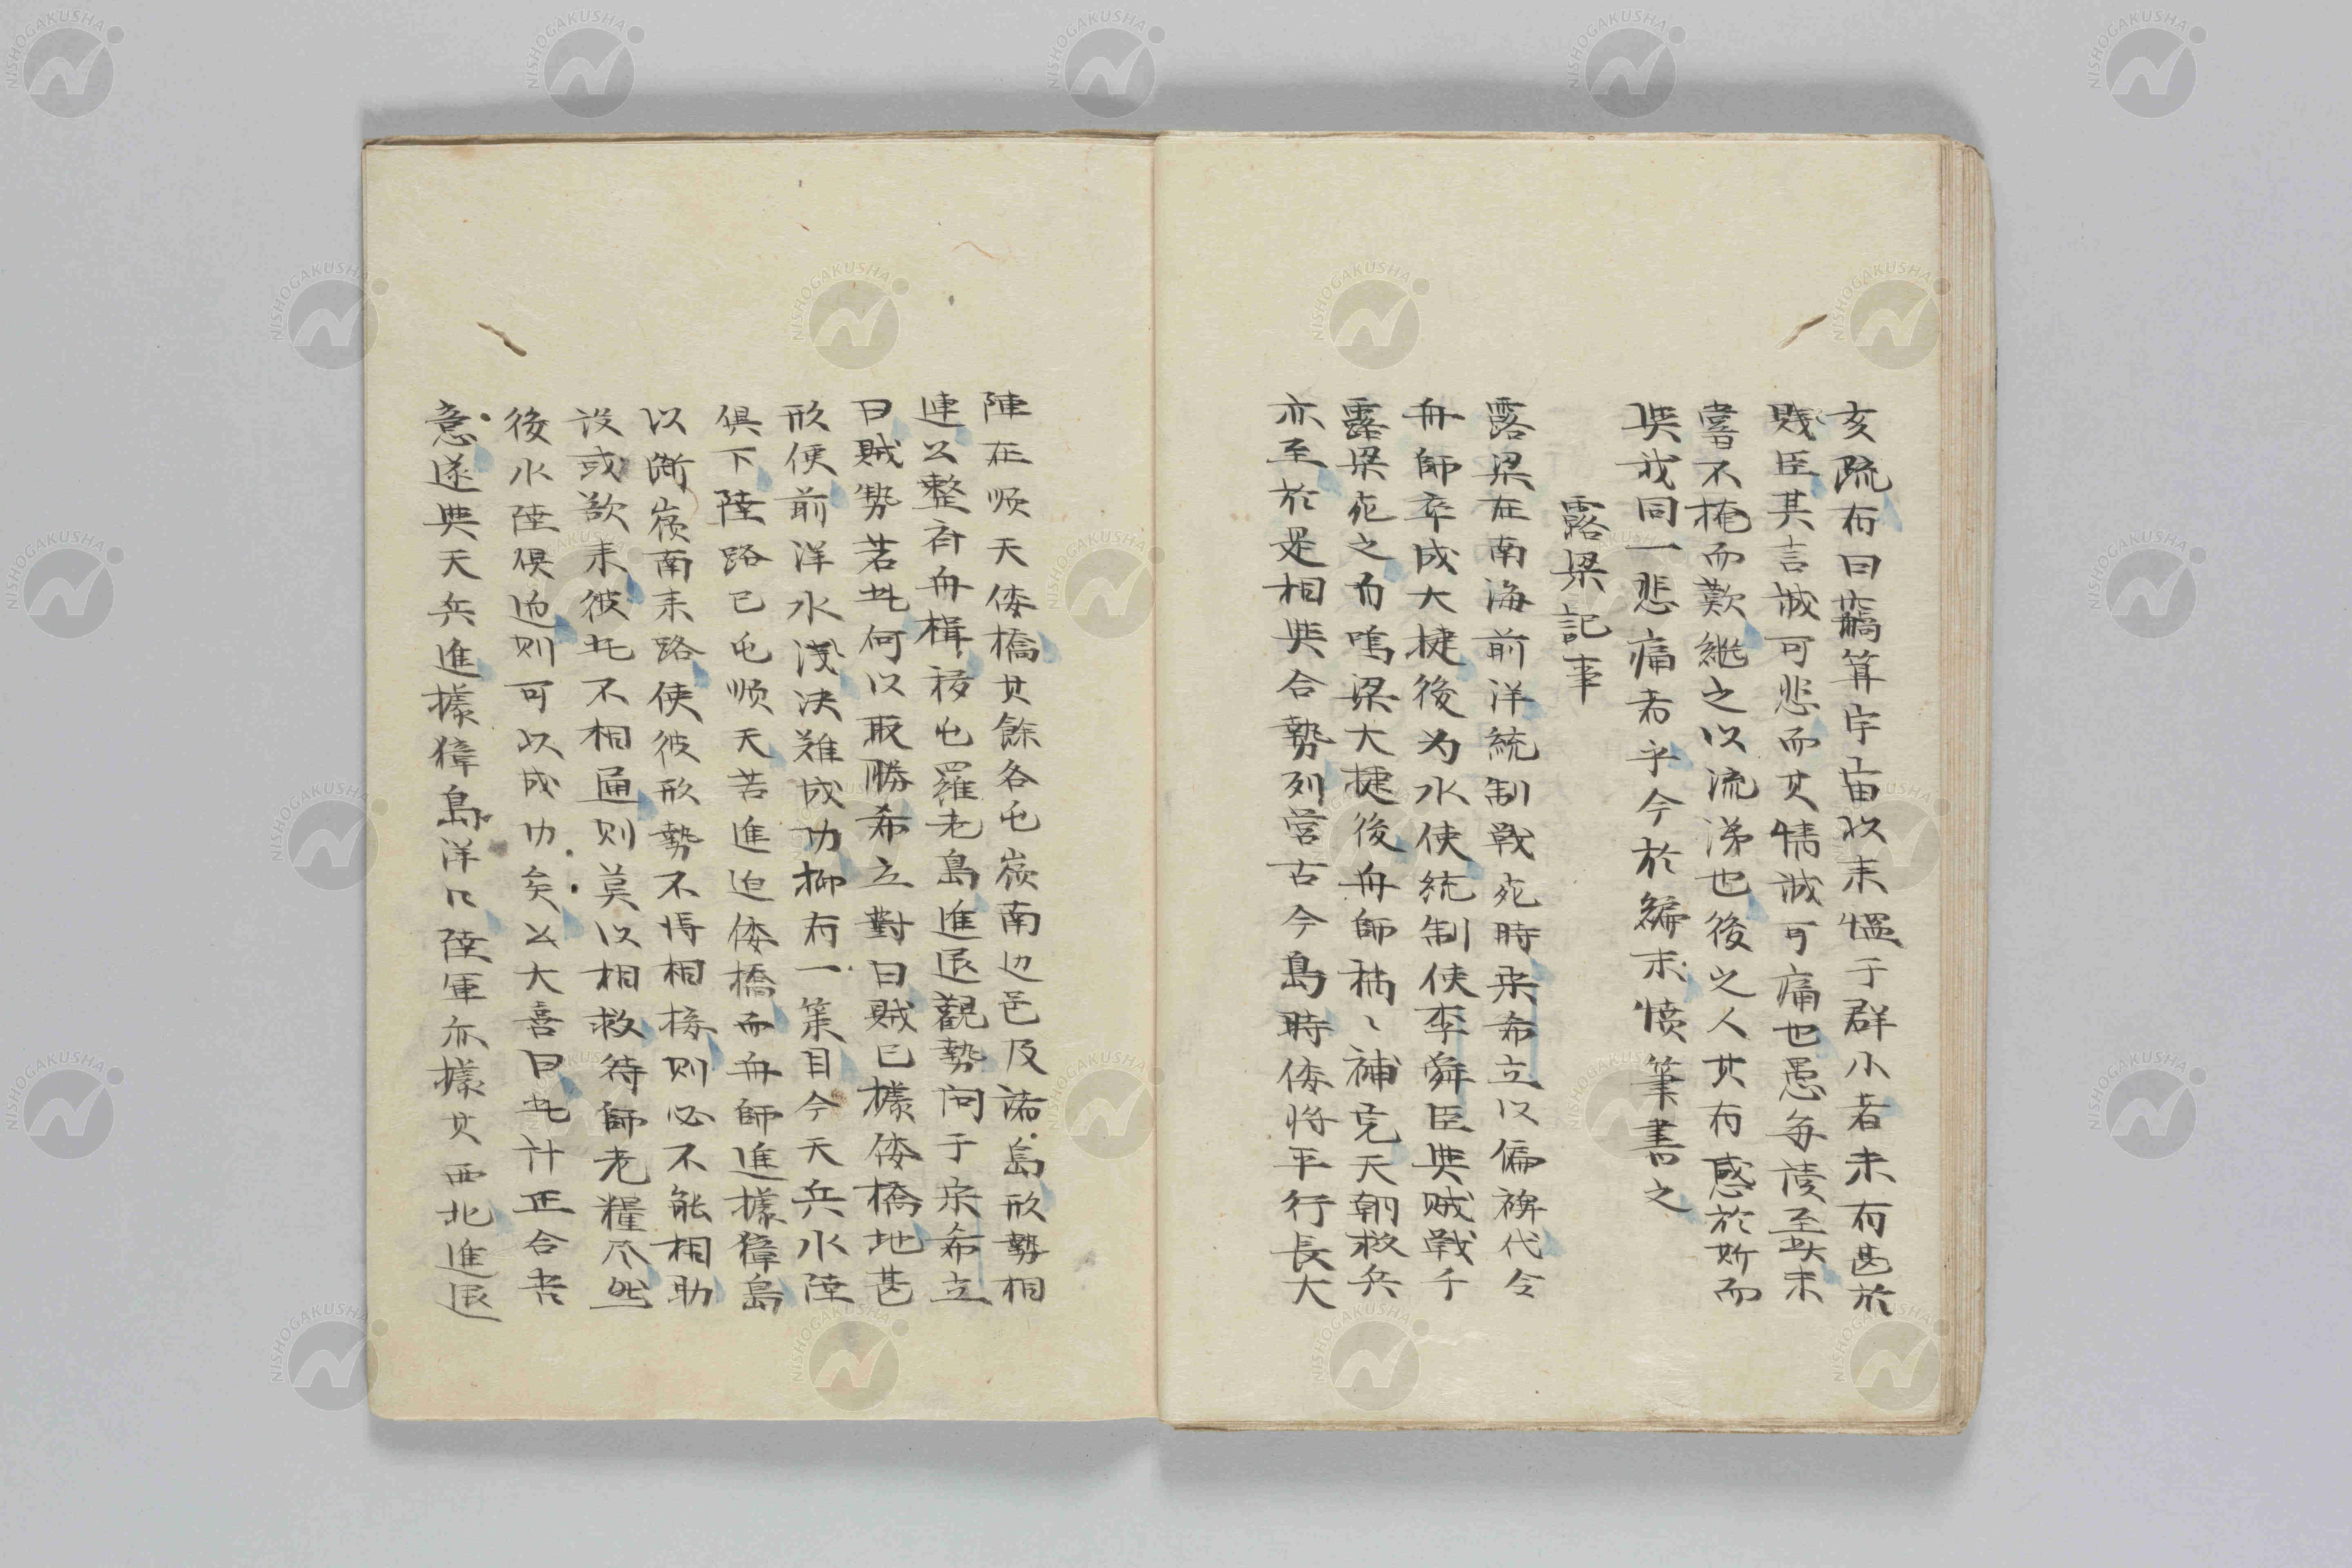 亥疏有曰竊算宇宙以来慍于群小者未有甚於
賤臣其言誠可悲而其情誠可痛也愚每讀至此未
嘗不掩而歎継之以流涕也後之人其有感於斯而
與我同一悲痛者乎今於編末憤筆書之
露梁記事
露梁在南海前洋統制戰死時宋希立以偏裨代令
舟師卒成大捷後为水使統制使李舜臣與賊戰于
露梁死之而鳴梁大捷後舟師稍〻補完天朝救兵
亦至於是相與合勢列営古今島時倭将平行長大
陣在順天倭橋其餘各屯嶺南边邑及諸島形勢相
連公整斉舟楫移屯羅老島進退觀勢问于宋希立
曰賊勢若此何以取勝希立對曰賊已據倭橋地甚
形便前洋水淺决難成功抑有一策目今天兵水陸
俱下陸路已屯順天若進迫倭橋而舟師進據獐島
以断嶺南来路使彼形勢不得相接则必不能相助
设或欲来彼此不相通则莫以相救待師老糧尽然
後水陸俱迫则可以成功矣公大喜曰此計正合吾
意遂與天兵進據獐島洋口陸軍亦據其西北進退
NISHOGAKUSHA